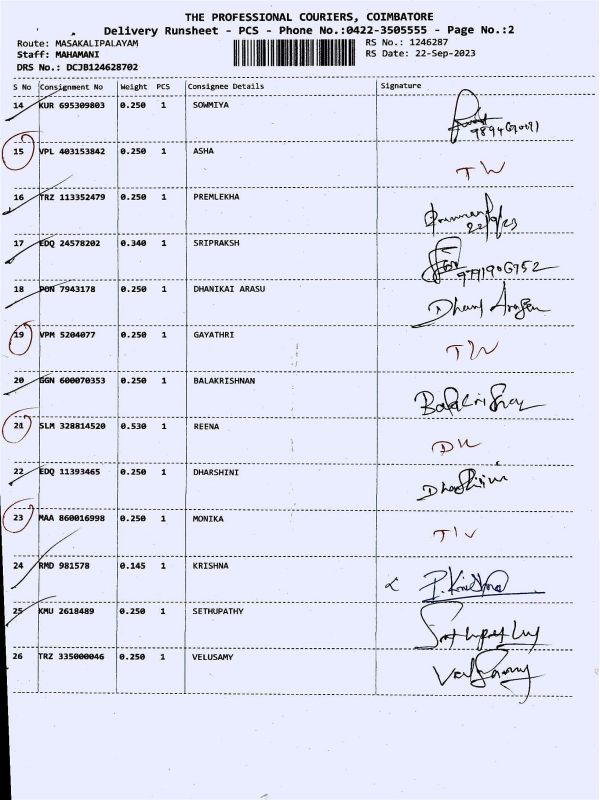 THE PROFESSIONAL COURIERS, COIMBATORE
Delivery Runsheet - PCS - Phone No.:0422-3505555 - Page No.:2
Route: MASAKALIPALAYAM RS No.: 1246287
Staff: MAHAMANI RS Date: 22-Sep-2023
DRS No.: DCJB124628702
S No Consignment No Weight PCS Consignee Details Signature
14 KUR 695309803 0.250 1 SOWMIYA
15 VPL 403153842 0.250 1 ASHA TW
16 TRZ 113352479 0.250 1 PREMLEKHA
22/9/23
17 EDQ 24578202 0.340 1 SRIPRAKSH
18 PON 7943178 0.250 1 DHANIKAI ARASU
19 VPM 5204077 0.250 1 GAYATHRI TW
20 GGN 600070353 0.250 1 BALAKRISHNAN
21 SLM 328814520 0.530 1 REENA
22 EDQ 11393465 0.250 1 DHARSHINI Dharshini
23 MAA 860016998 0.250 1 MONIKA
24 RMD 981578 0.145 1 KRISHNA
25 KMU 2618489 0.250 1 SETHUPATHY
26 TRZ 335000046 0.250 1 VELUSAMY